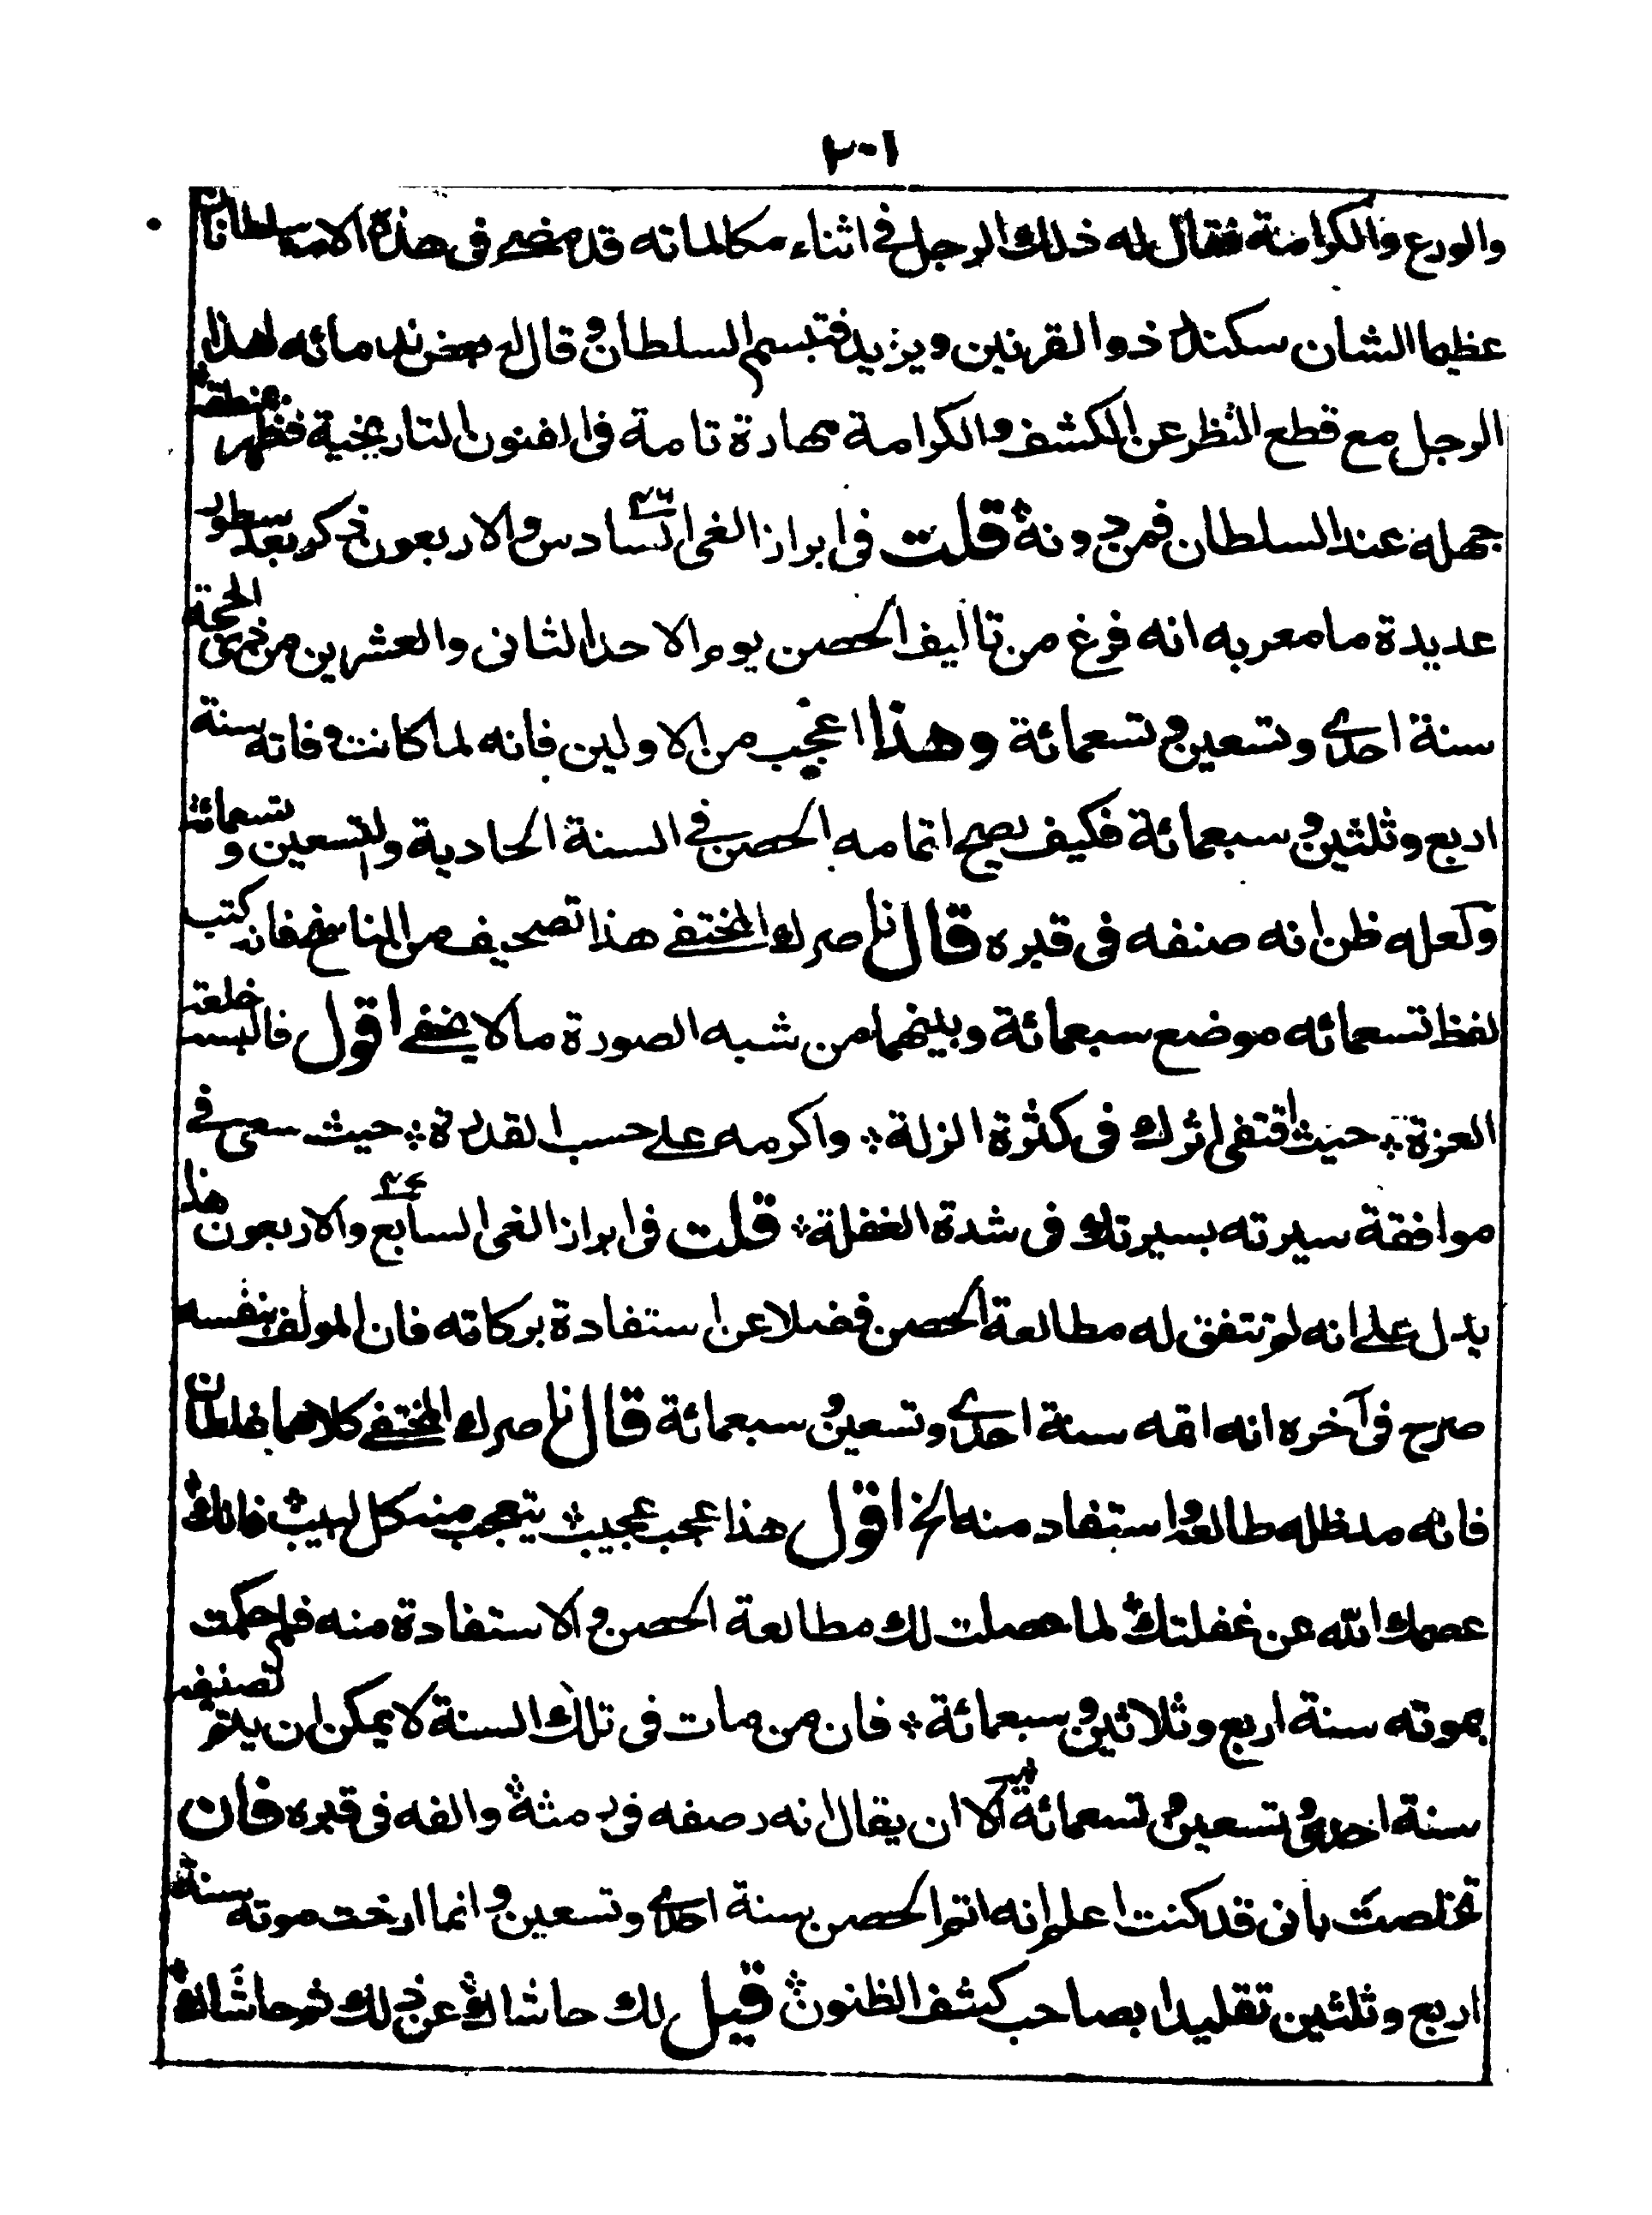 ٢٠١
والورع والكرامة فقال له ذلك الرجل فى اثناء مكالماته قد مضى فى هذه الامة سلطانان
عظيما الشان سكندر ذو القرنين ويزيد فتبسم السلطان وقال له ندمائه لهذا
الرجل مع قطع النظر عن الكشف والكرامة مهارة تامة فى الفنون التاريخية فظهر منطقه
جهله عند السلطان فمن دونه قلت فى ابراز الغى السادس والاربعون ٤٦ ذكر بعد سطور
عديدة ما معربه انه فرغ من تاليف الحصن يوم الاحد الثانى والعشرين من ذى الحجة
سنة احدى وتسعين وتسعمائة وهذا اعجب من الاولين فانه لما كانت وفاته سنة
اربع وثلثين وسبعمائة فكيف يصح اتمامه الحصن فى السنة الحادية والتسعين وتسعمائة
ولعله ظن انه صنفه فى قبره قال ناصرك المختفى هذا تصحيف من الناسخ فانه كتب
لفظ تسعمائه موضع سبعمائة وبينهما من شبه الصورة ما لا يخفى اقول فالبسه خلعة
العزة حيث اقتفى اثرك فى كثرة الزلة واكرمه على حسب القدرة حيث سعى فى
موافقة سيرته بسيرتك فى شدة الغفلة قلت فى ابراز الغى السابع والاربعون ٤٧ هذا
يدل على انه لم تتفق له مطالعة الحصن فضلا عن استفادة بركاته فان المولف بنفسه
صرح فى آخره انه اتمه سنة احدى وتسعين وسبعمائة قال ناصرك المختفى كلاهما غلطان
فانه مد ظله طالعه واستفاد منه الخ اقول هذا عجب عجيب يتعجب منه كل لبيب فانك
عصمك الله عن غفلتك لما حصلت لك مطالعة الحصن والاستفادة منه فلم حكمت
بموته سنة اربع وثلاثين وسبعمائة فان من مات فى تلك السنة لا يمكن ان يتم تصنيفه
سنة احدى وتسعين وتسعمائة الا ان يقال انه رصفه فى رمثه والفه فى قبره فان
تخلصت بانى قد كنت اعلم انه اتم الحصن سنة احدى وتسعين وانما ارخت موته سنة
اربع وثلثين تقليدا بصاحب كشف الظنون قيل لك حاشاك عن ذلك ثم حاشاك